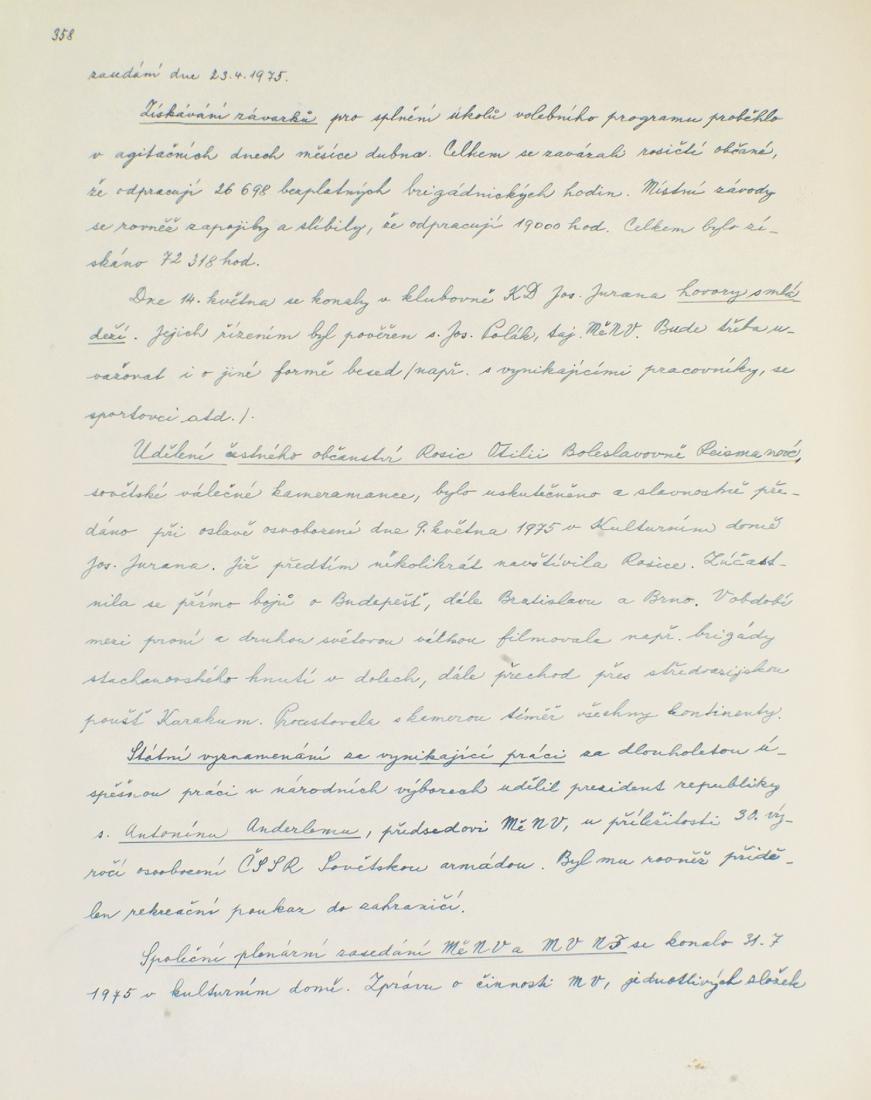 358
zasedání dne 23.4.1975.
Získávání závazků pro splnění úkolů volebního programu proběhlo
v agitačních dnech měsíce dubna. Celkem se zavázali rosičtí občané,
že odpracují 26 698 bezplatných brigádnických hodin. Místní závody
se rovněž zapojily a slíbily, že odpracují 19000 hod. Celkem bylo zí-
skáno 72 318 hod.
Dne 14. května se konaly v klubovně KD Jos. Jurana hovory s mlá
deží. Jejich řízením byl pověřen s. Jos. Polák, taj. MěNV. Bude třeba u-
važovat i o jiné formě besed /např. s vynikajícími pracovníky, se
sportovci atd./.
Udělení čestného občanství Rosic Otilii Boleslavovně Reismanové,
sovětské válečné kameramance, bylo uskutečněno a slavnostně pře-
dáno při oslavě osvobození dne 9. května 1975 v Kulturním domě
Jos. Jurana. Již předtím několikrát navštívila Rosice. Zúčast-
nila se přímo bojů o Budapešť, dále Bratislavu a Brno. V období
mezi první a druhou světovou válkou filmovala např. brigády
stachanovského hnutí v dolech, dále přechod přes středoasijskou
poušť Karakum. Procestovala s kamerou téměř všechny kontinenty.
Státní vyznamenání za vynikající práci za dlouholetou ú-
spěšnou práci v národních výborech udělil president republiky
s. Antonínu Anderlemu, předsedovi MěNV, u příležitosti 30. vý-
ročí osvobození ČSSR Sovětskou armádou. Byl mu rovněž přidě-
len rekreační poukaz do zahraničí.
Společní plenární zasedání MěNV a MV NF se konalo 31.7
1975 v kulturním domě. Zprávu o činnosti MV, jednotlivých složek